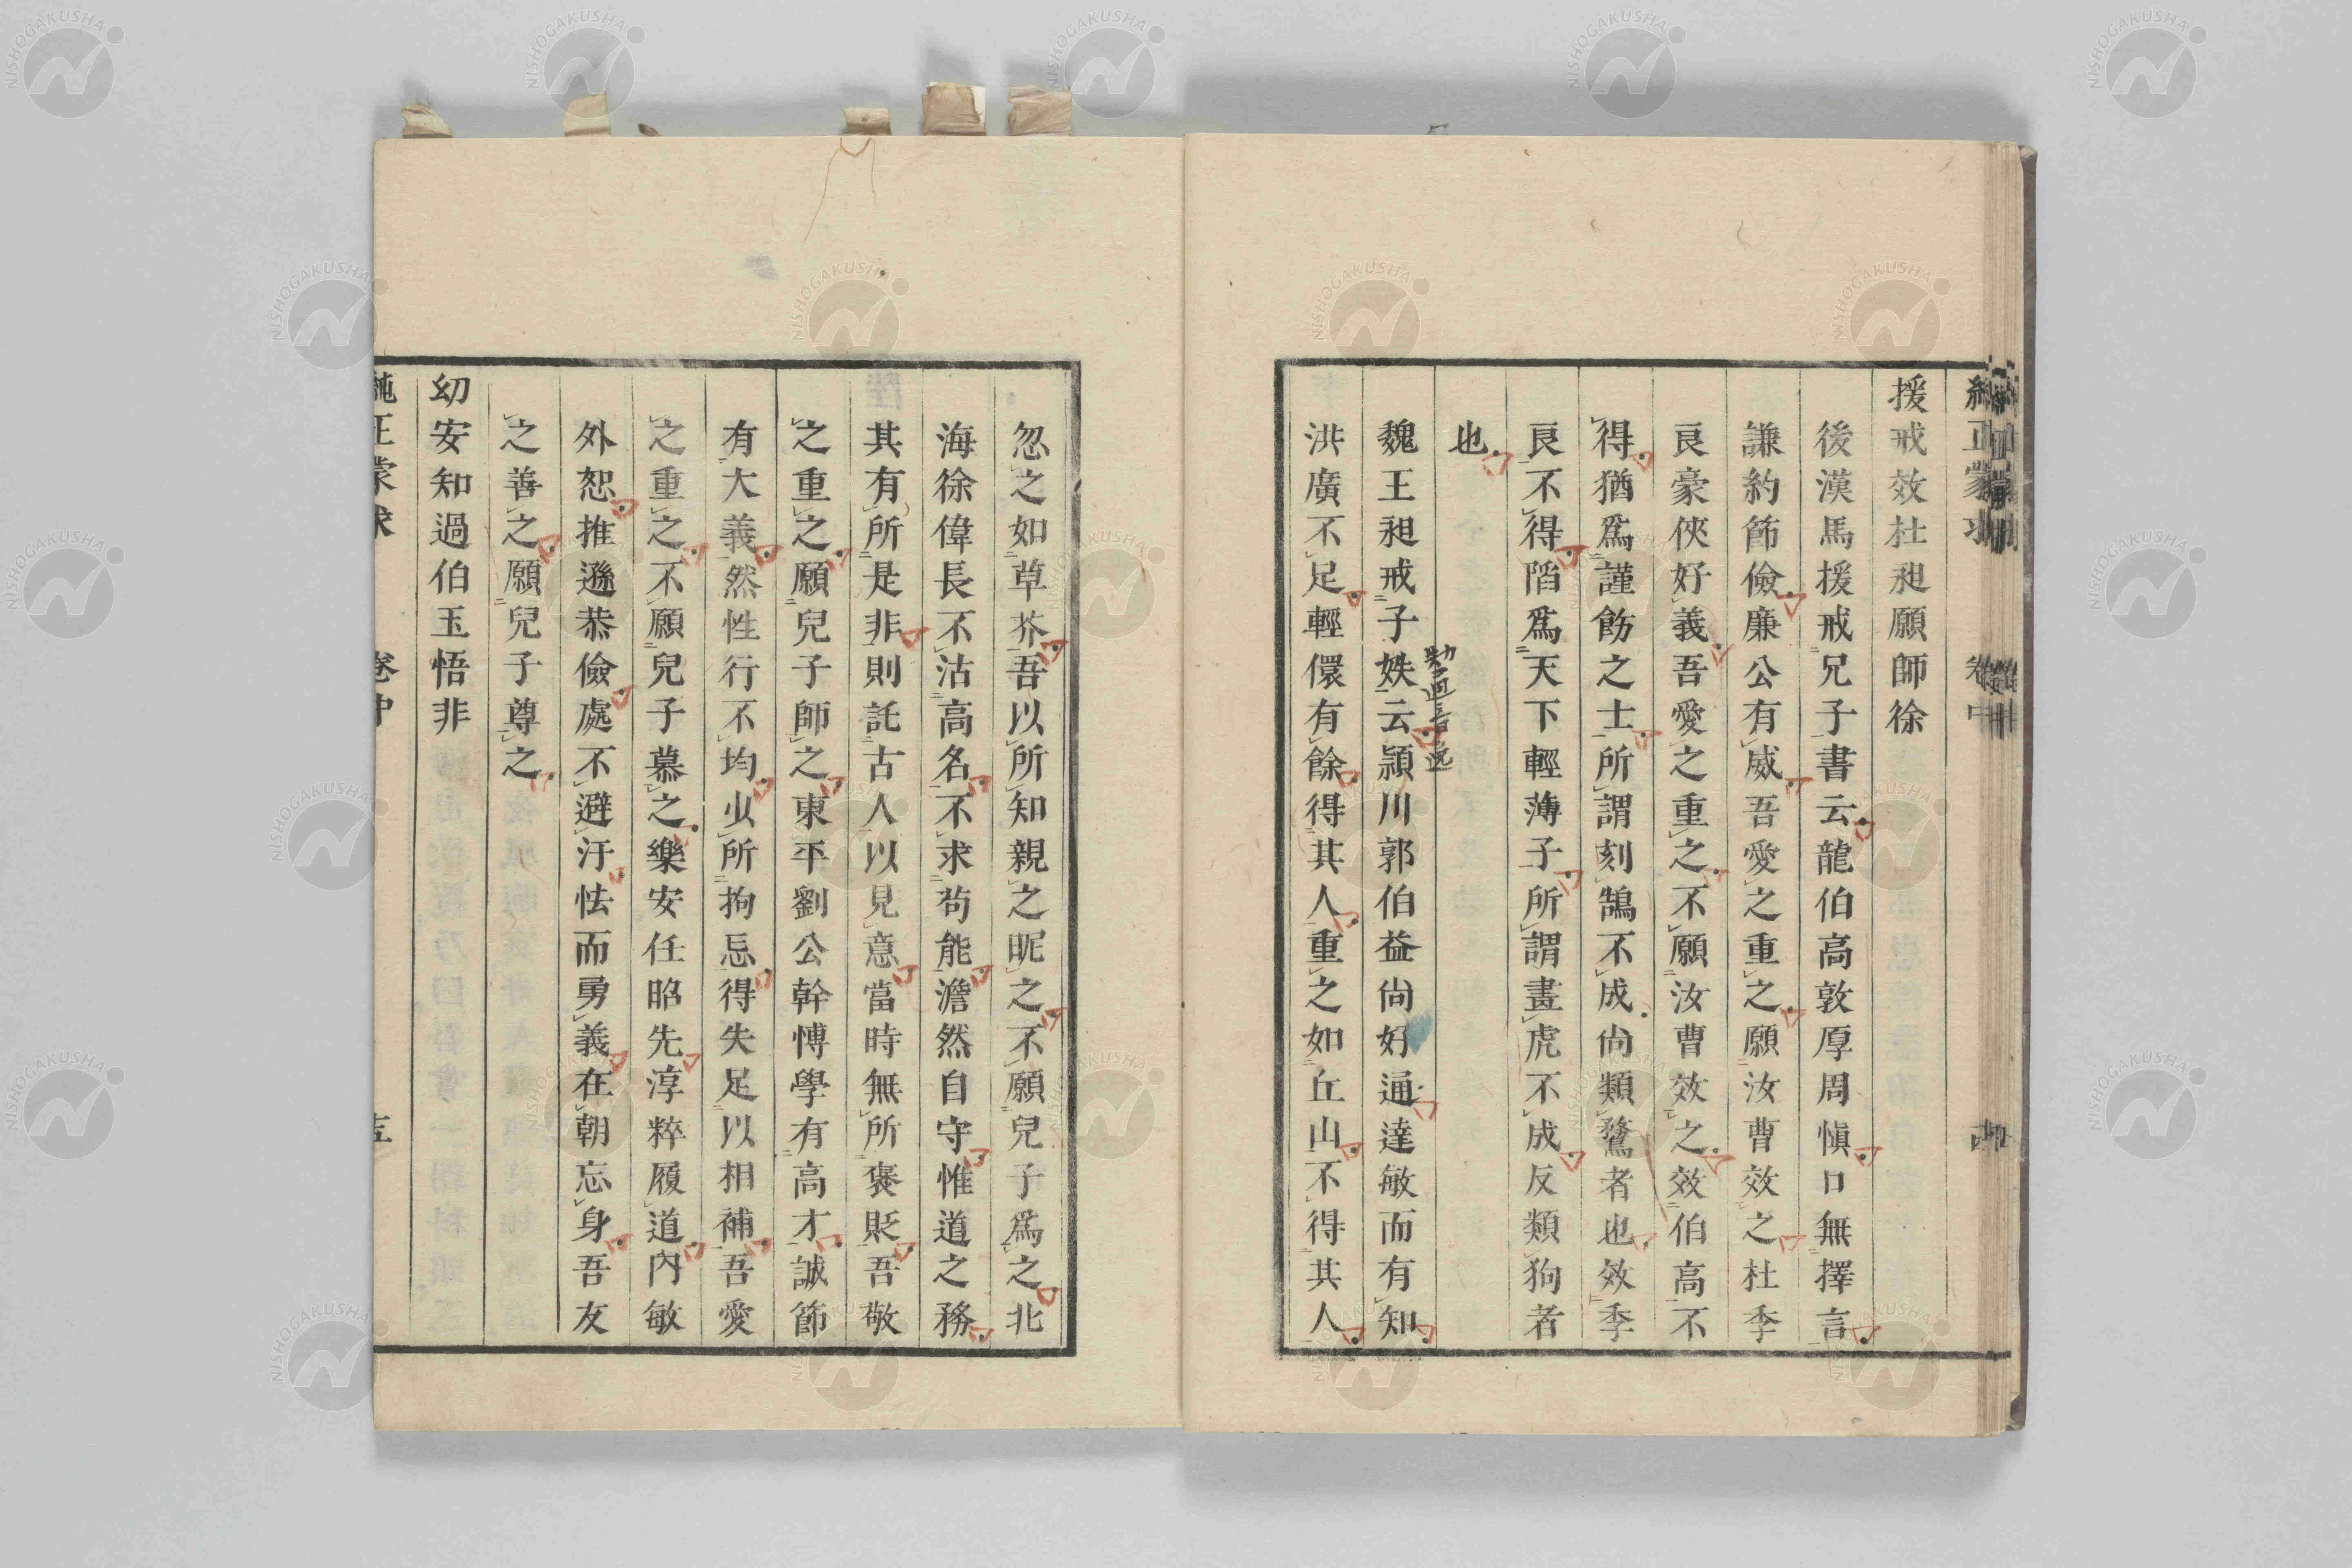 援戒效杜昶願師徐
後漢馬援戒兄子書云龍伯高敦厚周愼口無擇言
謙約節儉廉公有威吾愛之重之願汝曹效之杜季
良豪俠好義吾愛之重之不願汝曹效之效伯高不
得猶爲謹飭之士所謂刻鵠不成尙類鶩者也效季
良不得䧟爲天下輕薄子所謂畫虎不成反類狗者
也
魏王昶戒子姪云潁川郭伯益尙好通達敏而有知
洪廣不足輕儇有餘得其人重之如丘山不得其人
忽之如草芥吾以所知親之昵之不願兒子爲之北
海徐偉長不沽高名不求苟能澹然自守惟道之務
其有所是非則託古人以見意當時無所褒貶吾敬
之重之願兒子師之東平劉公幹愽學有高才誠節
有大義然性行不均少所拘忌得失足以相補吾愛
之重之不願兒子慕之樂安任昭先淳粹履道內敏
外恕推遜恭儉處不避汙怯而勇義在朝忘身吾友
之善之願兒子尊之
幼安知過伯玉悟非
純正蒙求 卷中 五
NISHOGAKUSHA